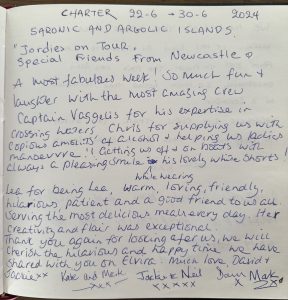 CHARTER 22-6 → 30-6 2024
SARONIC AND ARGOLIC ISLANDS.
"Jordies on Tour.
Special Friends From Newcastle
A most fabulous week! So much fun +
laughter with the most amazing crew
Captain Vaggelis for his expertise in
crossing waters. Chris for supplying us with
copious amounts of alcohol & helping us ladies
manoevvre!! Getting off + on boats with
always a pleasing smile his lovely white shorts!
while wearing
Lea for being Lea, warm, loving, friendly,
hilarious patient and a good friend to us all.
Serving the most delicious meals every day. Her
creativity and flair was exceptional.
Thank you again for looking after us, we will
cherish the hilarious and happy time we have
shared with you on Elvira. Much love David +
Jackie xx Kate and Mark Jackie & Neil Dawn Mark
xxx xxxxx